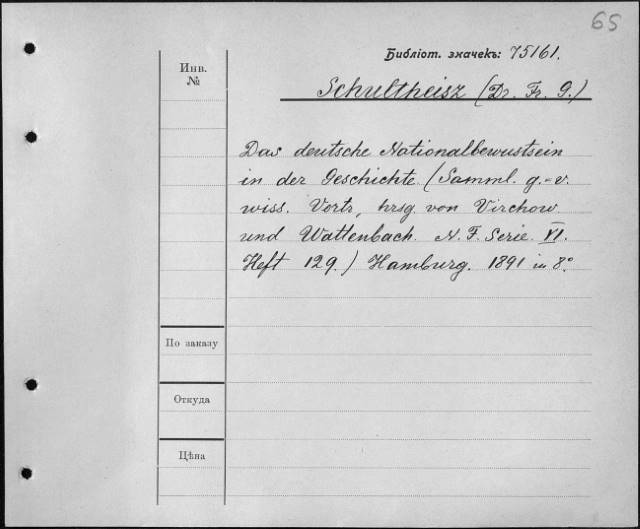 65
Библіот. значекъ: 75161.
Инв.
№
Schultheisz (Dr. Fr. G.)
Das deutsche Nationalbewustsein
in der Geschichte (Samml. g.=v.
wiss. Vortr, hrsg von Virchow
und Wattenbach. N. F. Serie XI.
Heft 129.) Hamburg. 1891 in 8°
По заказу
Откуда
Цѣна